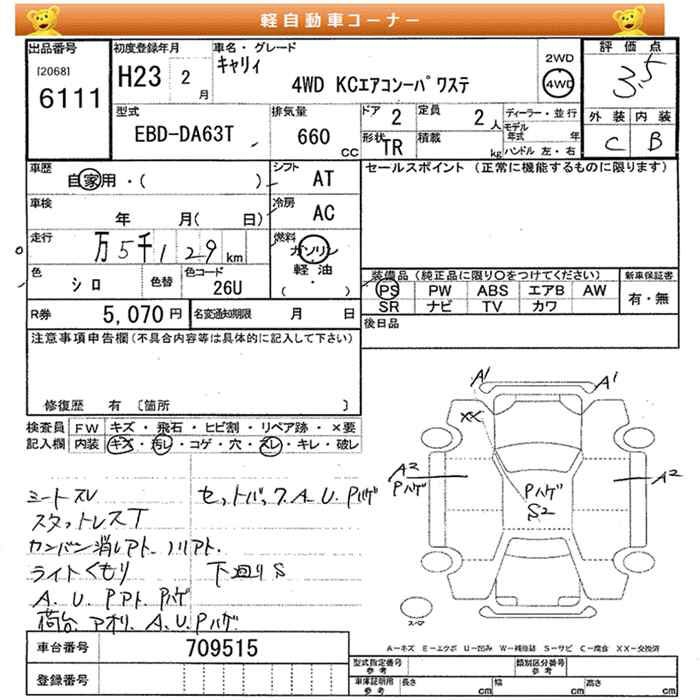 軽自動車コーナー
出品番号
[2068]
6111
初度登録年月
H23 2月
車名・グレード
キャリィ
4WD KCエアコンーパワステ
2WD
4WD
評価点
3.5
型式
EBD-DA63T
排気量
660 CC
ドア 2
定員 2人
形状 TR
積載 kg
ディーラー・並行
モデル年式 年
ハンドル 左・右
外装 内装
C B
車歴
自家用・( )
シフト AT
車検
年 月( 日)
冷房 AC
走行
万5千129km
燃料
ガソリン
軽油
・
( )
色
シロ
色替
色コード
26U
R券 5,070円
名変通知期限 月 日
セールスポイント (正常に機能するものに限ります)
装備品 (純正品に限り○をつけてください)
新車保証書
PS PW ABS エアB AW
有・無
SR ナビ TV カワ
後日品
注意事項申告欄(不具合内容等は具体的に記入して下さい)
修復歴 有 〔箇所 〕
検査員 FW キズ・飛石・ヒビ割・リペア跡・×要
記入欄 内装 キズ・汚レ・コゲ・穴・スレ・キレ・破レ
シートスレ
セットバック A.U.Pハゲ
スタットレスT
カンバン消しアト.ノリアト.
ライトくもり
下回りS
A.U.Pアト.Pハゲ
荷台.アオリ.A.U.Pハゲ
A1
A1
XX
A2
Pハゲ
Pハゲ
S2
A2
スーア
A=キズ E=エクボ U=凹み W=補修跡 S=サビ C=腐食 XX=交換済
車台番号 709515
登録番号
型式指定番号 参考
類別区分番号 参考
車庫証明用 参考
長さ cm
幅 cm
高さ cm